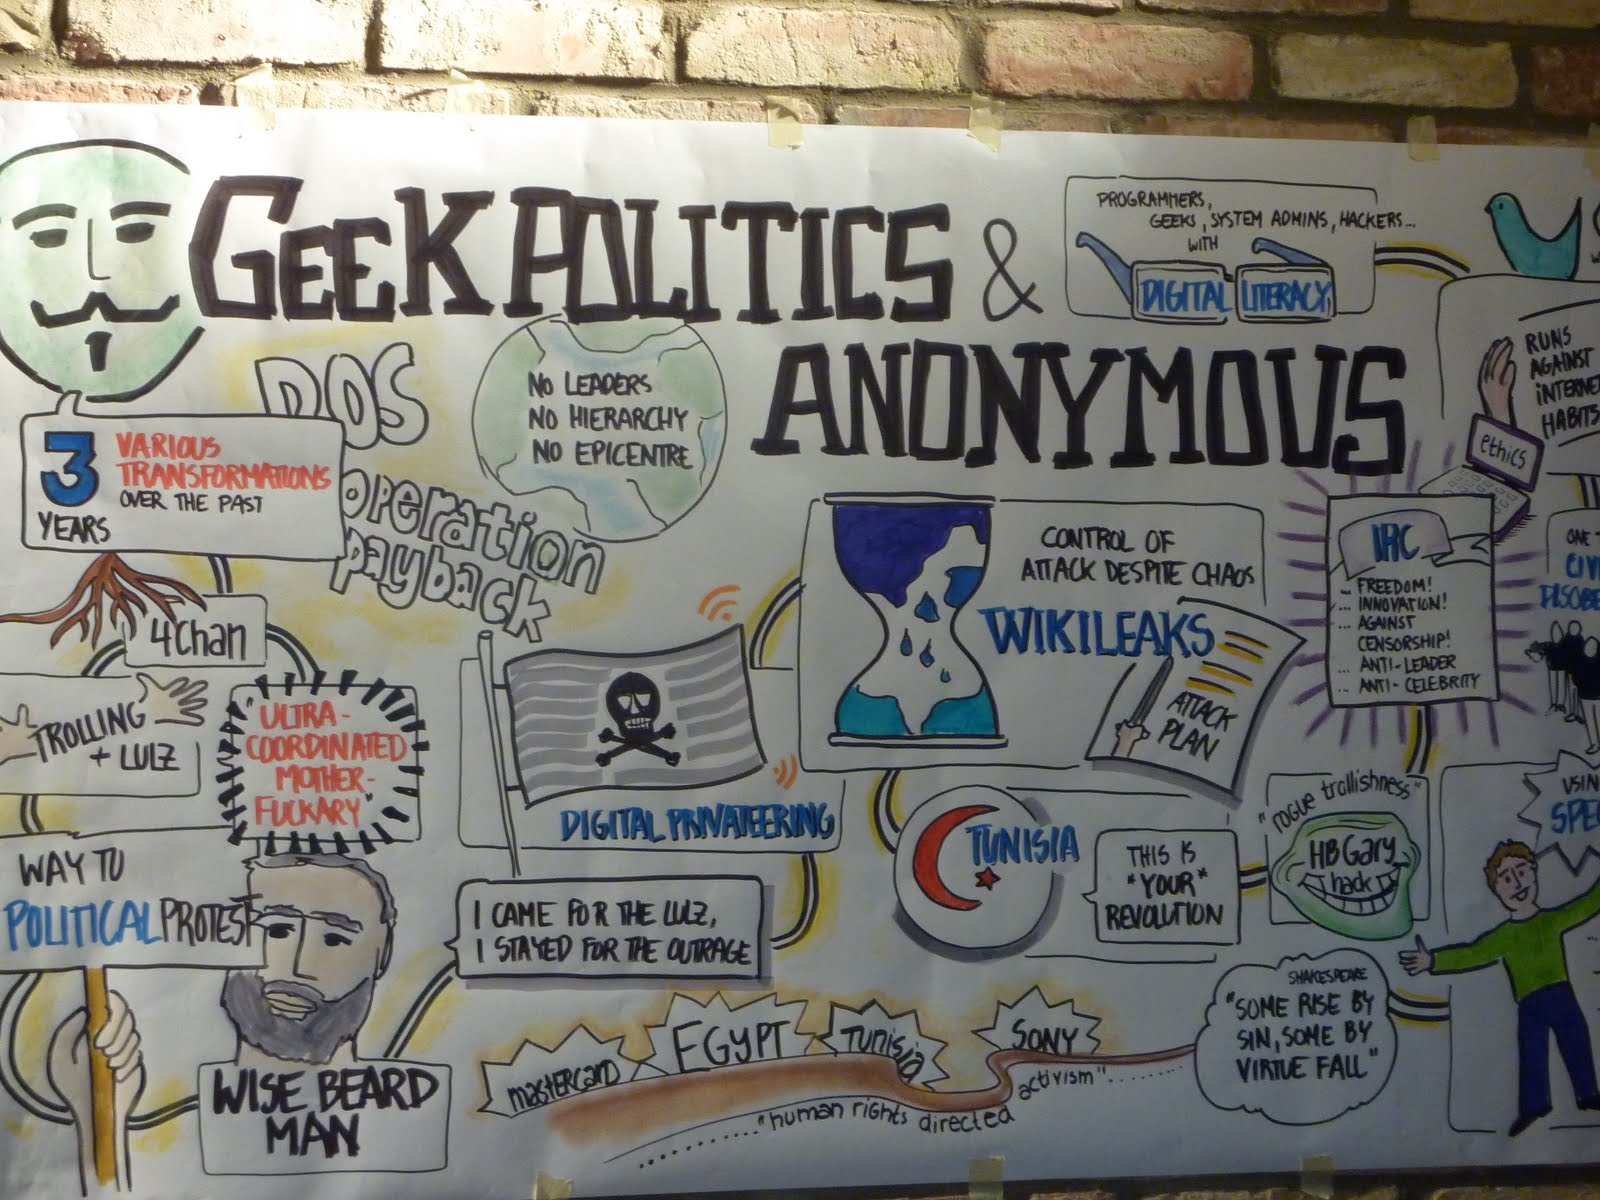 GEEK POLITICS &
ANONYMOUS
PROGRAMMERS,
GEEKS, SYSTEM ADMINS, HACKERS...
WITH
DIGITAL LITERACY
3
YEARS
VARIOUS
TRANSFORMATIONS
OVER THE PAST
DOS
OPERATION
PAYBACK
NO LEADERS
NO HIERARCHY
NO EPICENTRE
4chan
TROLLING
+ LULZ
"ULTRA-
COORDINATED
MOTHER-
FUCKARY"
WAY TO
POLITICAL PROTEST
WISE BEARD
MAN
DIGITAL PRIVATEERING
I CAME FOR THE LULZ,
I STAYED FOR THE OUTRAGE
CONTROL OF
ATTACK DESPITE CHAOS
WIKILEAKS
ATTACK
PLAN
TUNISIA
THIS IS
"YOUR"
REVOLUTION
"rogue trollishness"
HBGary
hack
IRC
... FREEDOM!
... INNOVATION!
... AGAINST
CENSORSHIP!
... ANTI-LEADER
... ANTI-CELEBRITY
ethics
RUNS
AGAINST
HABITS
mastercard
EGYPT
Tunisia
SONY
..."human rights directed activism"........
SHAKESPEARE
"SOME RISE BY
SIN, SOME BY
VIRTUE FALL"